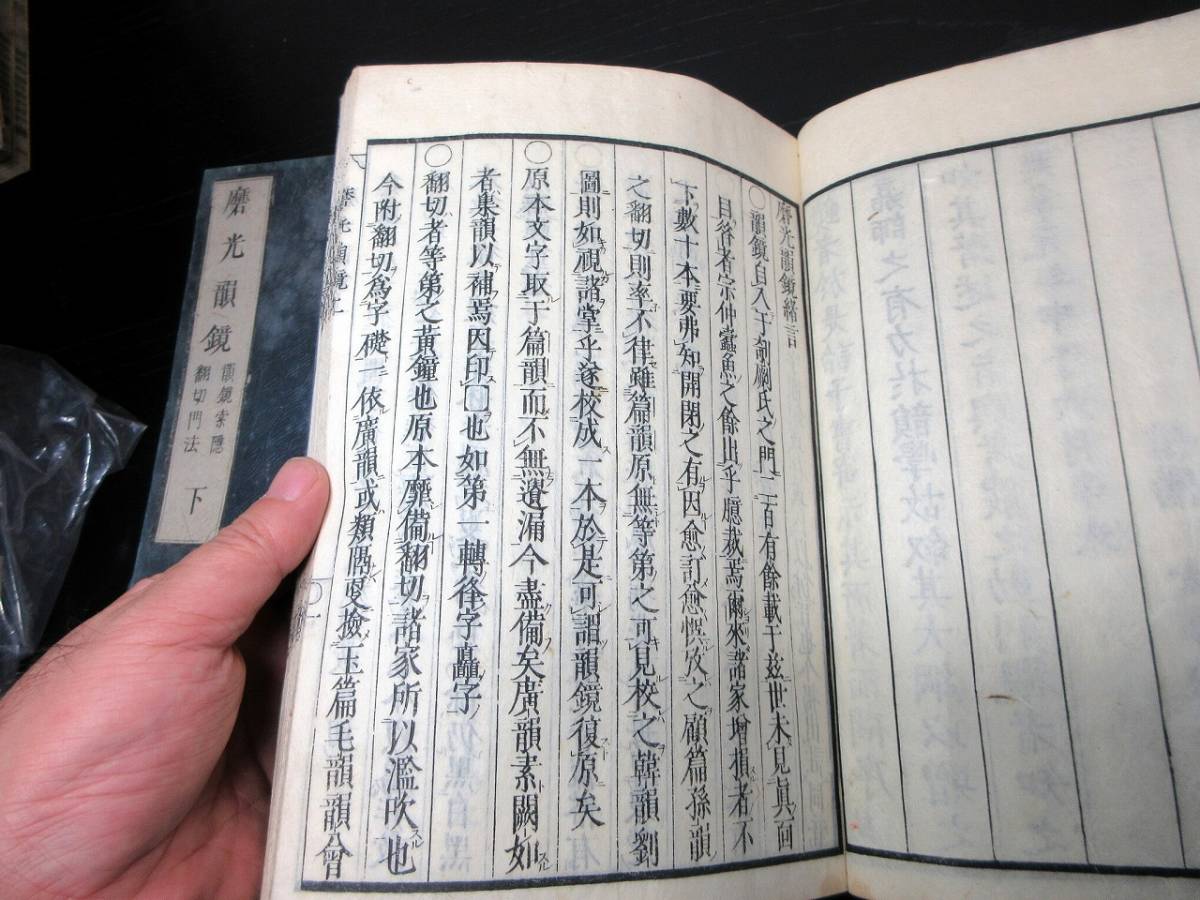 磨光韻鏡緒言
○韻鏡自入于剞劂氏之門二百有餘載于茲世未見眞面
目咎者宗仲蠹魚之餘出乎臆裁焉爾來諸家增損者不
下數十本要弗知開閉之有因愈訂愈悞攷之顧篇孫韻
之翻切則率不律雖篇韻原無等第之可見校之韓韻劉
圖則如視諸掌乎遂校成一本於是可謂韻鏡復原矣
○原本文字取于篇韻而不無遺漏今盡備矣廣韻素闕如
者集韻以補焉因印□也如第一轉䃔字䆻字
○翻切者等第之黃鐘也原本靡備翻切諸家所以濫吹也
今附翻切爲字礎一依廣韻或類隔更撿玉篇毛韻韻會
磨光韻鏡上
磨光韻鏡 韻鏡索隱
翻切門法 下